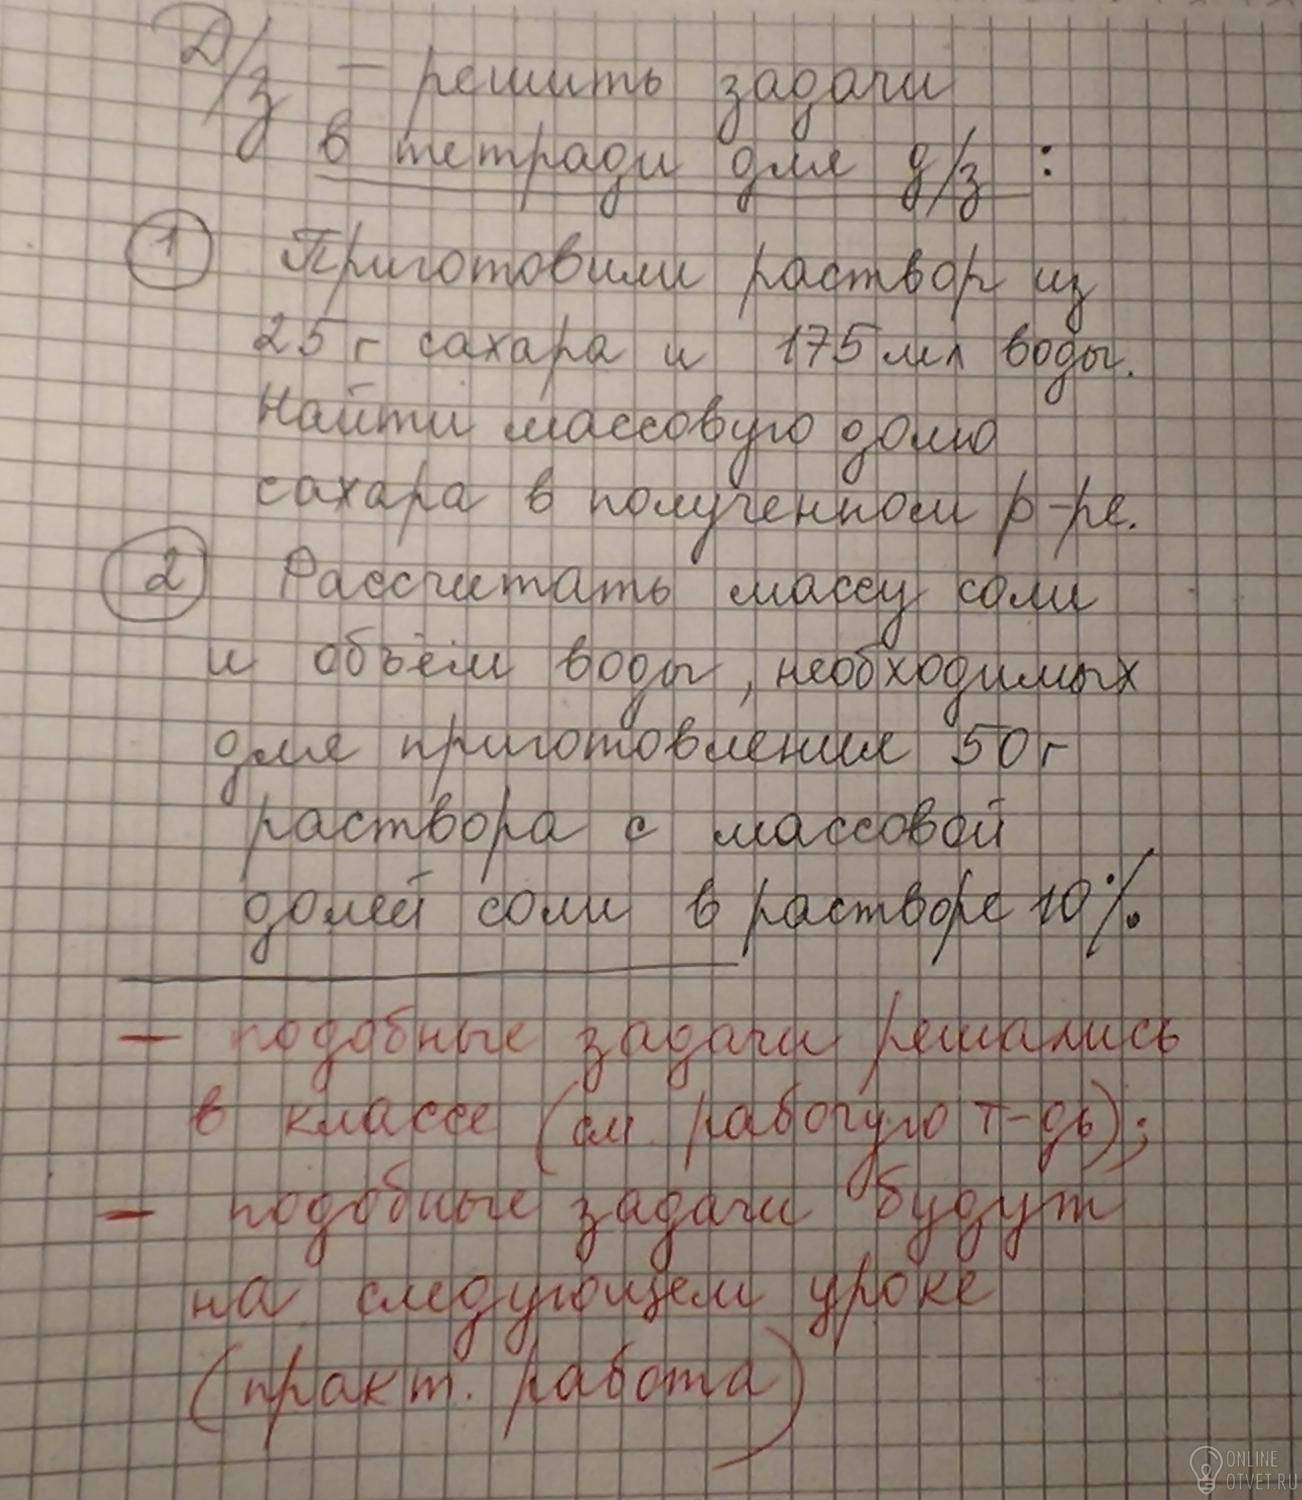 Д/з – решить задачи
в тетради для д/з :
1 Приготовили раствор из
25 г сахара и 175 мл воды.
Найти массовую долю
сахара в полученном р-ре.
2 Рассчитать массу соли
и объём воды, необходимых
для приготовления 50 г
раствора с массовой
долей соли в растворе 10%.
– подобные задачи решались
в классе (см. рабочую т-дь);
– подобные задачи будут
на следующем уроке
(практ. работа)
ONLINE
OTVET.RU